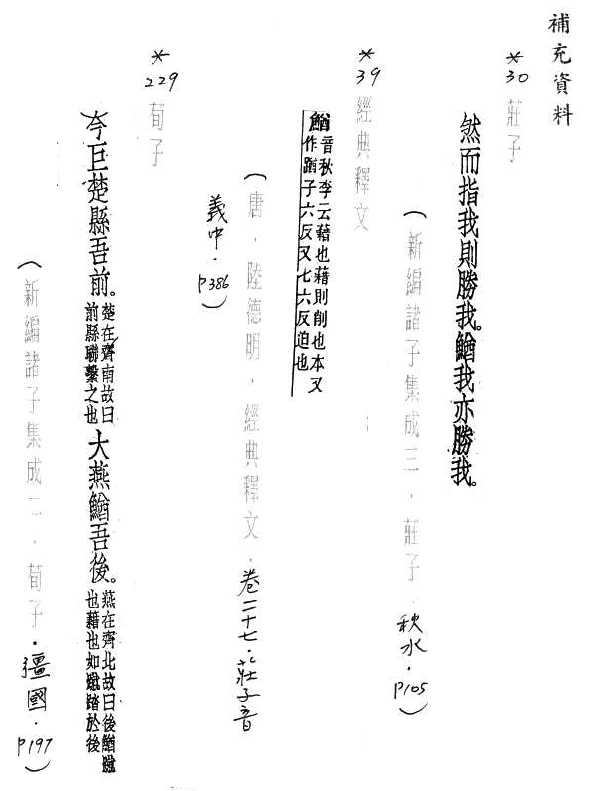 補充資料
*30 莊子
然而指我則勝我。鰌我亦勝我。
（新編諸子集成三．莊子．秋水．P105）
*39 經典釋文
鰌音秋李云藉也藉則削也本又
作蹵子六反又七六反迫也
（唐．陸德明．經典釋文．卷二十七．莊子音
義中．P386）
*229 荀子
今巨楚縣吾前。楚在齊南故曰前縣聯繫之也大燕鰌吾後。燕在齊北故曰後鰌也藉也如踏於後
（新編諸子集成二．荀子．彊國．P197）